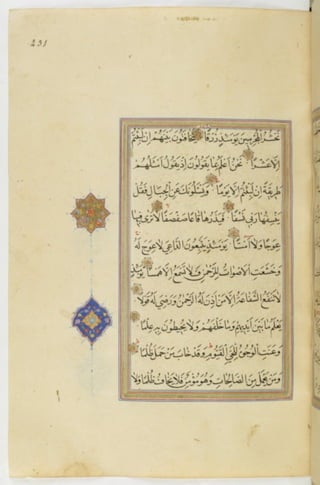 231
نحشر المجرمين يومئذ زرقا يتخافتون بينهم ان لبثتم
الا عشرا نحن اعلم بما يقولون اذ يقول امثلهم
طريقة ان لبثتم الا يوما ويسئلونك عن الجبال فقل
ينسفها ربي نسفا فيذرها قاعا صفصفا لا ترى فيها
عوجا ولا امتا يومئذ يتبعون الداعي لا عوج له
وخشعت الاصوات للرحمن فلا تسمع الا همسا يومئذ
لا تنفع الشفاعة الا من اذن له الرحمن ورضي له قولا
يعلم ما بين ايديهم وما خلفهم ولا يحيطون به علما
وعنت الوجوه للحي القيوم وقد خاب من حمل ظلما
ومن يعمل من الصالحات وهو مؤمن فلا يخاف ظلما ولا